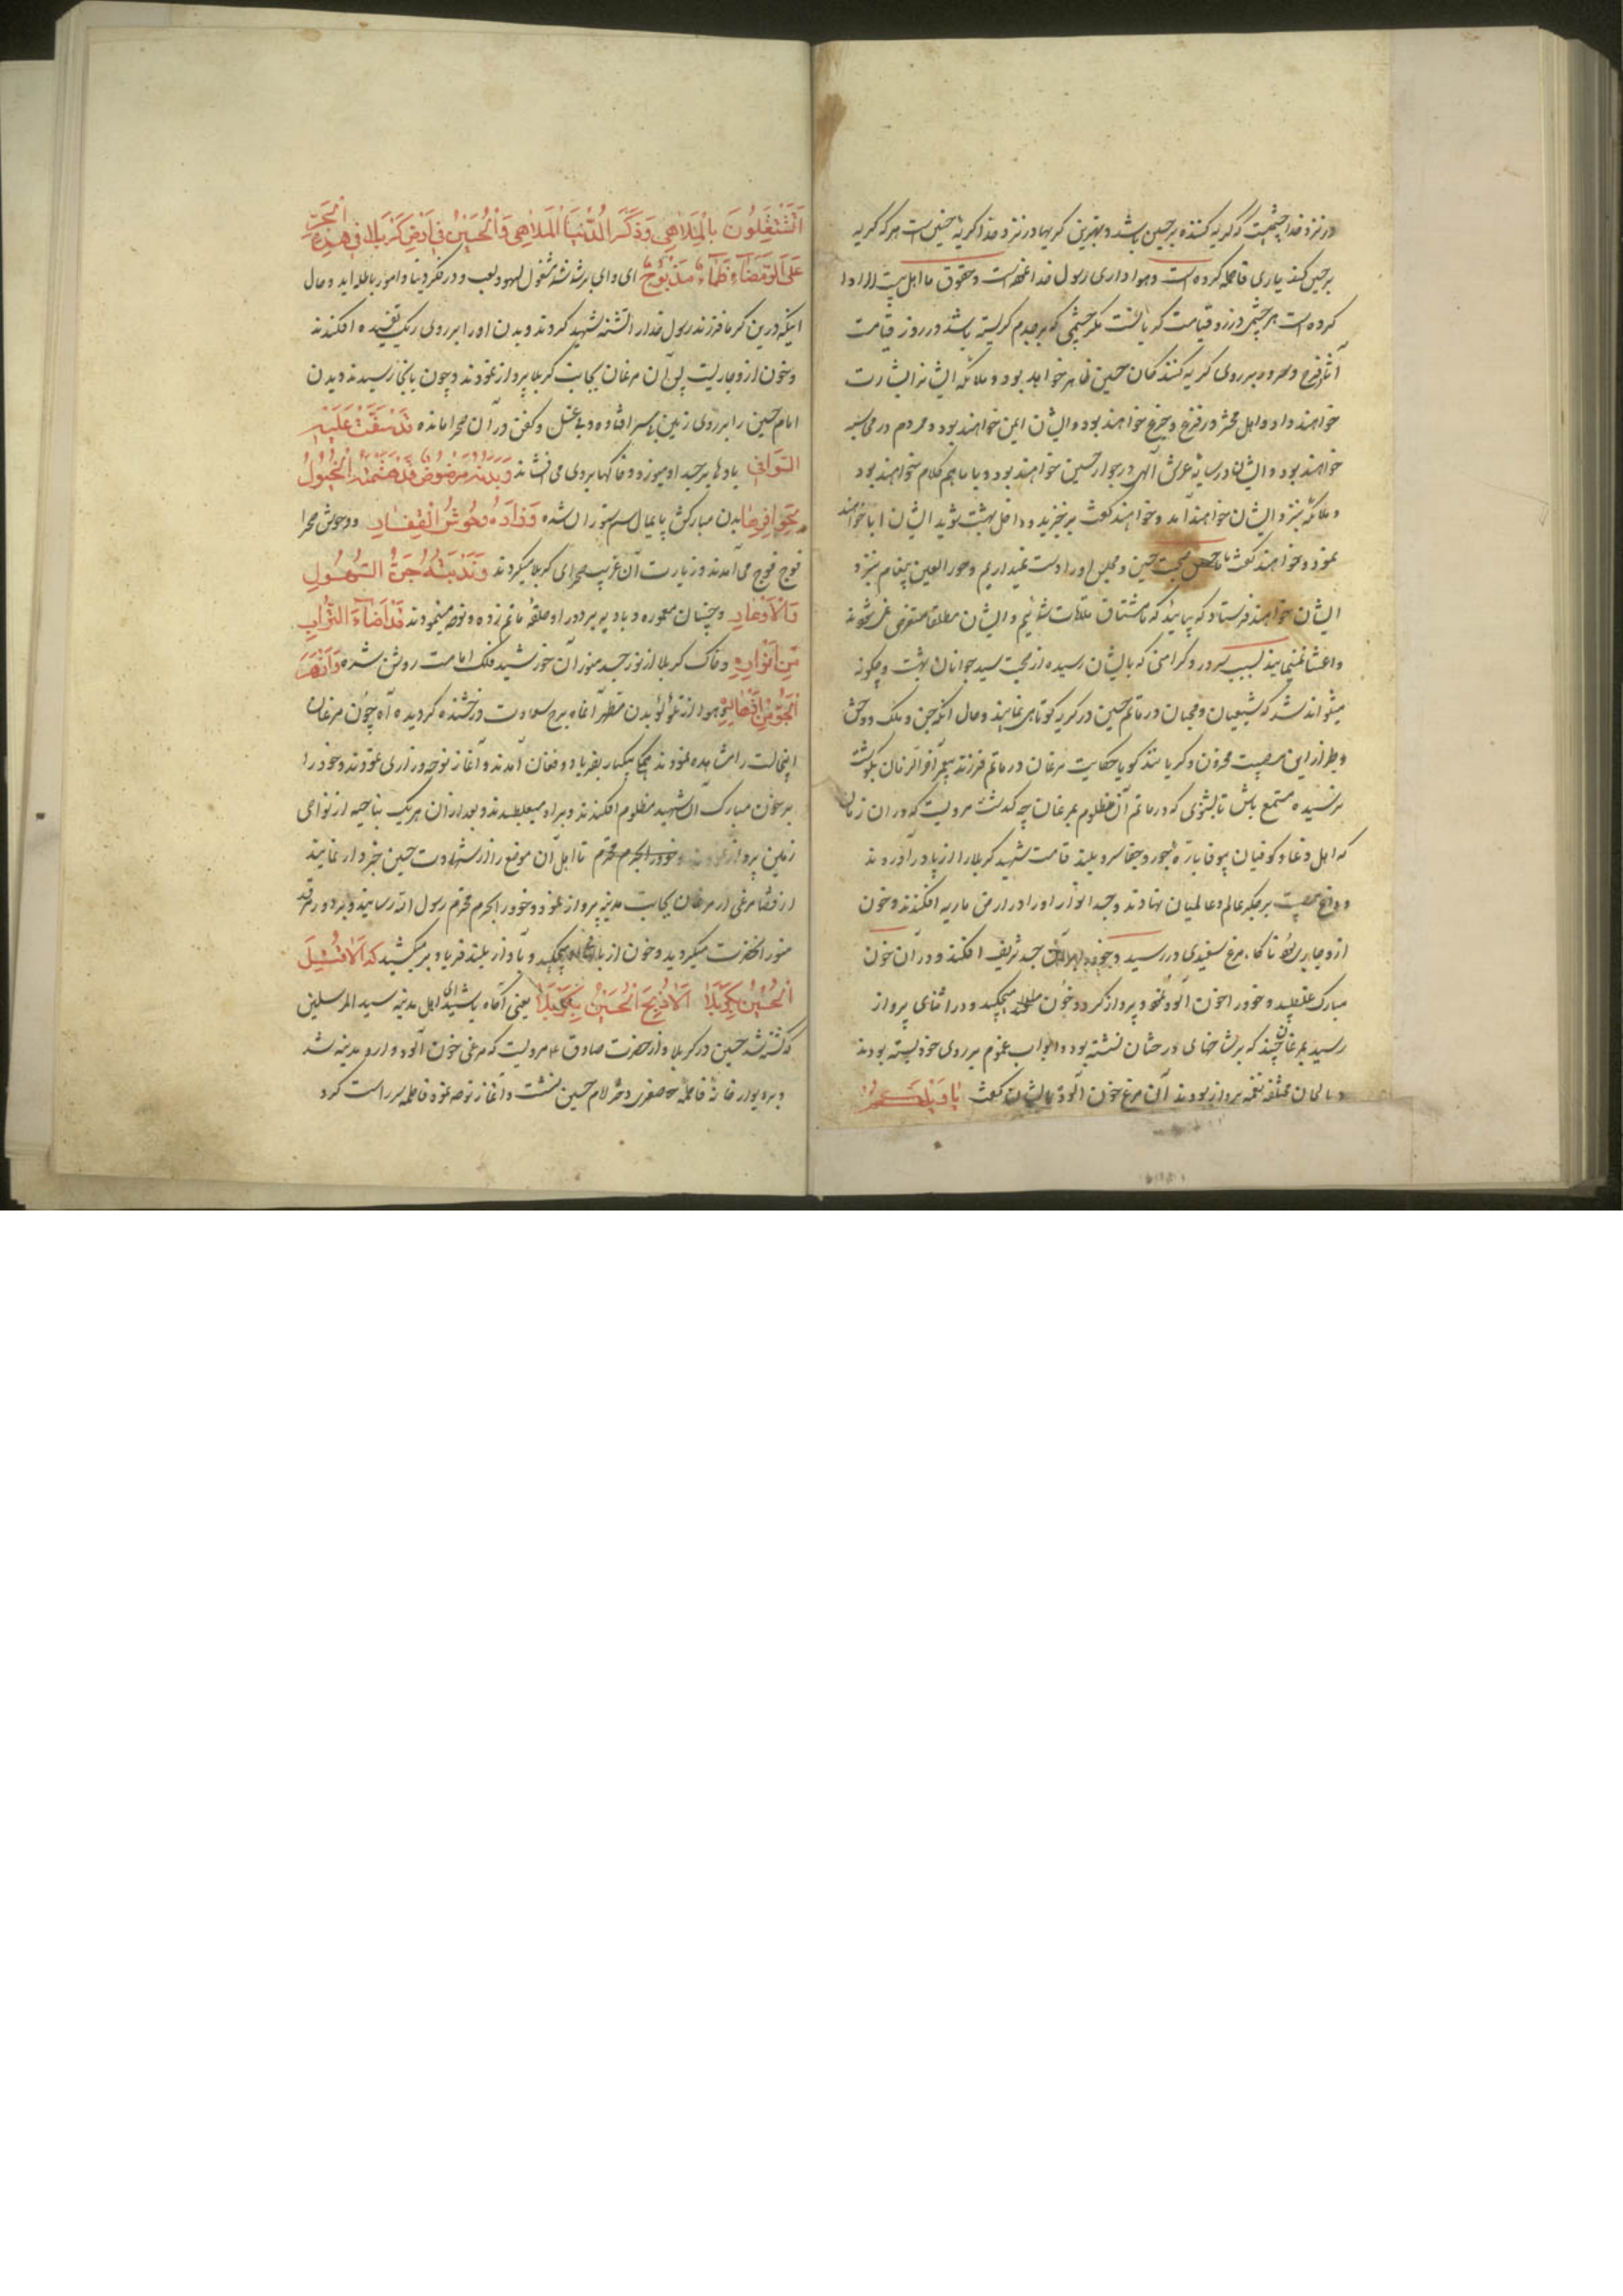 در نزد خدا چشمیست که گریه کننده بر حسین باشد و بهترین گریها در نزد خدا گریهٔ حسین است هر که گریه
بر حسین کند یاری فاطمه کرده است و هواداری رسول خدا نموده است و حقوق ما اهل بیت را ادا
کرده است هر چشمی در روز قیامت گریانست مگر چشمی که بر جدم گریسته باشد در روز قیامت
آثار فرح و سرور بر روی گریه کنندگان حسین ظاهر خواهد بود و ملائکه ایشانرا بشارت
خواهند داد و اهل محشر در فزع و جزع خواهند بود و ایشان ایمن خواهند بود و مردم در محاسبه
خواهند بود و ایشان در سایهٔ عرش الهی در جوار حسین خواهند بود و با ما هم کلام خواهند بود
و ملائکه بنزد ایشان خواهند آمد و خواهند گفت برخیزید و داخل بهشت شوید ایشان ابا خواهند
نمود و خواهند گفت ما صحبت حسین و مجلس او را از دست نمیدهیم و حور العین پیغام بنزد
ایشان خواهند فرستاد که بیایید که ما مشتاق ملاقات شمائیم و ایشان مطلقا متعرض نمی شوند
و اعتنا نمینمایند بسبب سرور و کرامتی که بایشان رسیده از صحبت سید جوانان بهشت و چگونه
میتواند شد که شیعیان و محبان در ماتم حسین در گریه کوتاهی نمایند و حال آنکه جن و ملک و وحش
و طیر از این مصیبت محزون و گریانند گویا حکایت مرغان در ماتم فرزند پیغمبر آخر الزمان بگوشت
نرسیده مستمع باش تا بشنوی که در ماتم آن مظلوم بمرغان چه گذشت مرویست که در آن زمان
که اهل دغا و کوفیان بیوفا بارهٔ جور و جفا سرو بلند قامت شهید کربلا را از پا در آوردند
و داغ مصیبت بر جگر عالم و عالمیان نهادند و جسد انوار او را در ارض ماریه افکندند و خون
از او جاری بود ناگاه مرغ سفیدی در رسید و خود را بر آن جسد شریف افکند و در آن خون
مبارک غلطید و خود را خون آلود نمود و پرواز کرد و خون میچکید و در اثنای پرواز
رسید بمرغان چند که بر شاخهای درختان نشسته بود و ابواب غموم بر روی خود بسته بودند
و بالحان مختلفه نغمه پرداز بودند آن مرغ خون آلود بایشان گفت یا ویلکم
اتشتغلون بالملاهی و ذکر الدنیا الملاهی و الحسین فی ارض کربلا فی هذه الحر
علی الرمضاء ظماء مذبوح ای وای بر شما شما مشغول لهو و لعب و در فکر دنیا و امور باطله اید و حال
اینکه درین گرما فرزند رسول خدا را تشنه شهید کردند و بدن او را بر روی ریگ تفتیده افکندند
و خون از او جاریست پس آن مرغان بجانب کربلا پرواز نمودند و چون بانجا رسیدند دیدن
امام حسین را بر روی زمین بی سر افتاده و بی غسل و کفن در آن صحرا مانده قد سفت علیه
السوافی بادها بر جسد او میوزد و خاکها بر وی می افشاند و بدنه مرضوض قد هشمته الخیول
بحوافرها بدن مبارکش پایمال سم ستوران شده و زاره وحوش القفار و وحوش صحرا
فوج فوج می آمدند و زیارت آن غریب صحرای کربلا میکردند و ندبته جن السهول
و الاوعار و جنیان معموره و بادیه بر دور او حلقهٔ ماتم زده و نوحه مینمودند قد اضاء التراب
من انواره و خاک کربلا از نور جسد منور آن خورشید فلک امامت روشن شده و ازهر
الجو من ازهاره و هوا از تلؤلؤ بدن مطهر آنماه برج سعادت درخشنده گردیده آه چون مرغان
اینحالت را مشاهده نمودند همه یکبار بفریاد و فغان آمدند و آغاز نوحه و زاری نمودند و خود را
بر خون مبارک آن شهید مظلوم افکندند و بر او میغلطیدند و بعد از آن هر یک بناحیه از نواحی
زمین پرواز نمودند تا اهل آن موضع را از شهادت حسین خبردار نمایند
از قضا مرغی از مرغان بجانب مدینه پرواز نمود و خود را بحرم محترم رسول الله رسانید و بر دور مرقد
منور آنحضرت میگردید و خون از بالهای او میچکید و بآواز بلند فریاد بر میکشید که الا قتل
الحسین بکربلا الا ذبح الحسین بکربلا یعنی آگاه باشید ای اهل مدینه سید المرسلین
که کشته شد حسین در کربلا و از حضرت صادق ع مرویست که مرغی خون آلود وارد مدینه شد
و بر دیوار خانهٔ فاطمهٔ صغری دختر امام حسین نشست و آغاز نوحه نمود فاطمه سر راست کرد